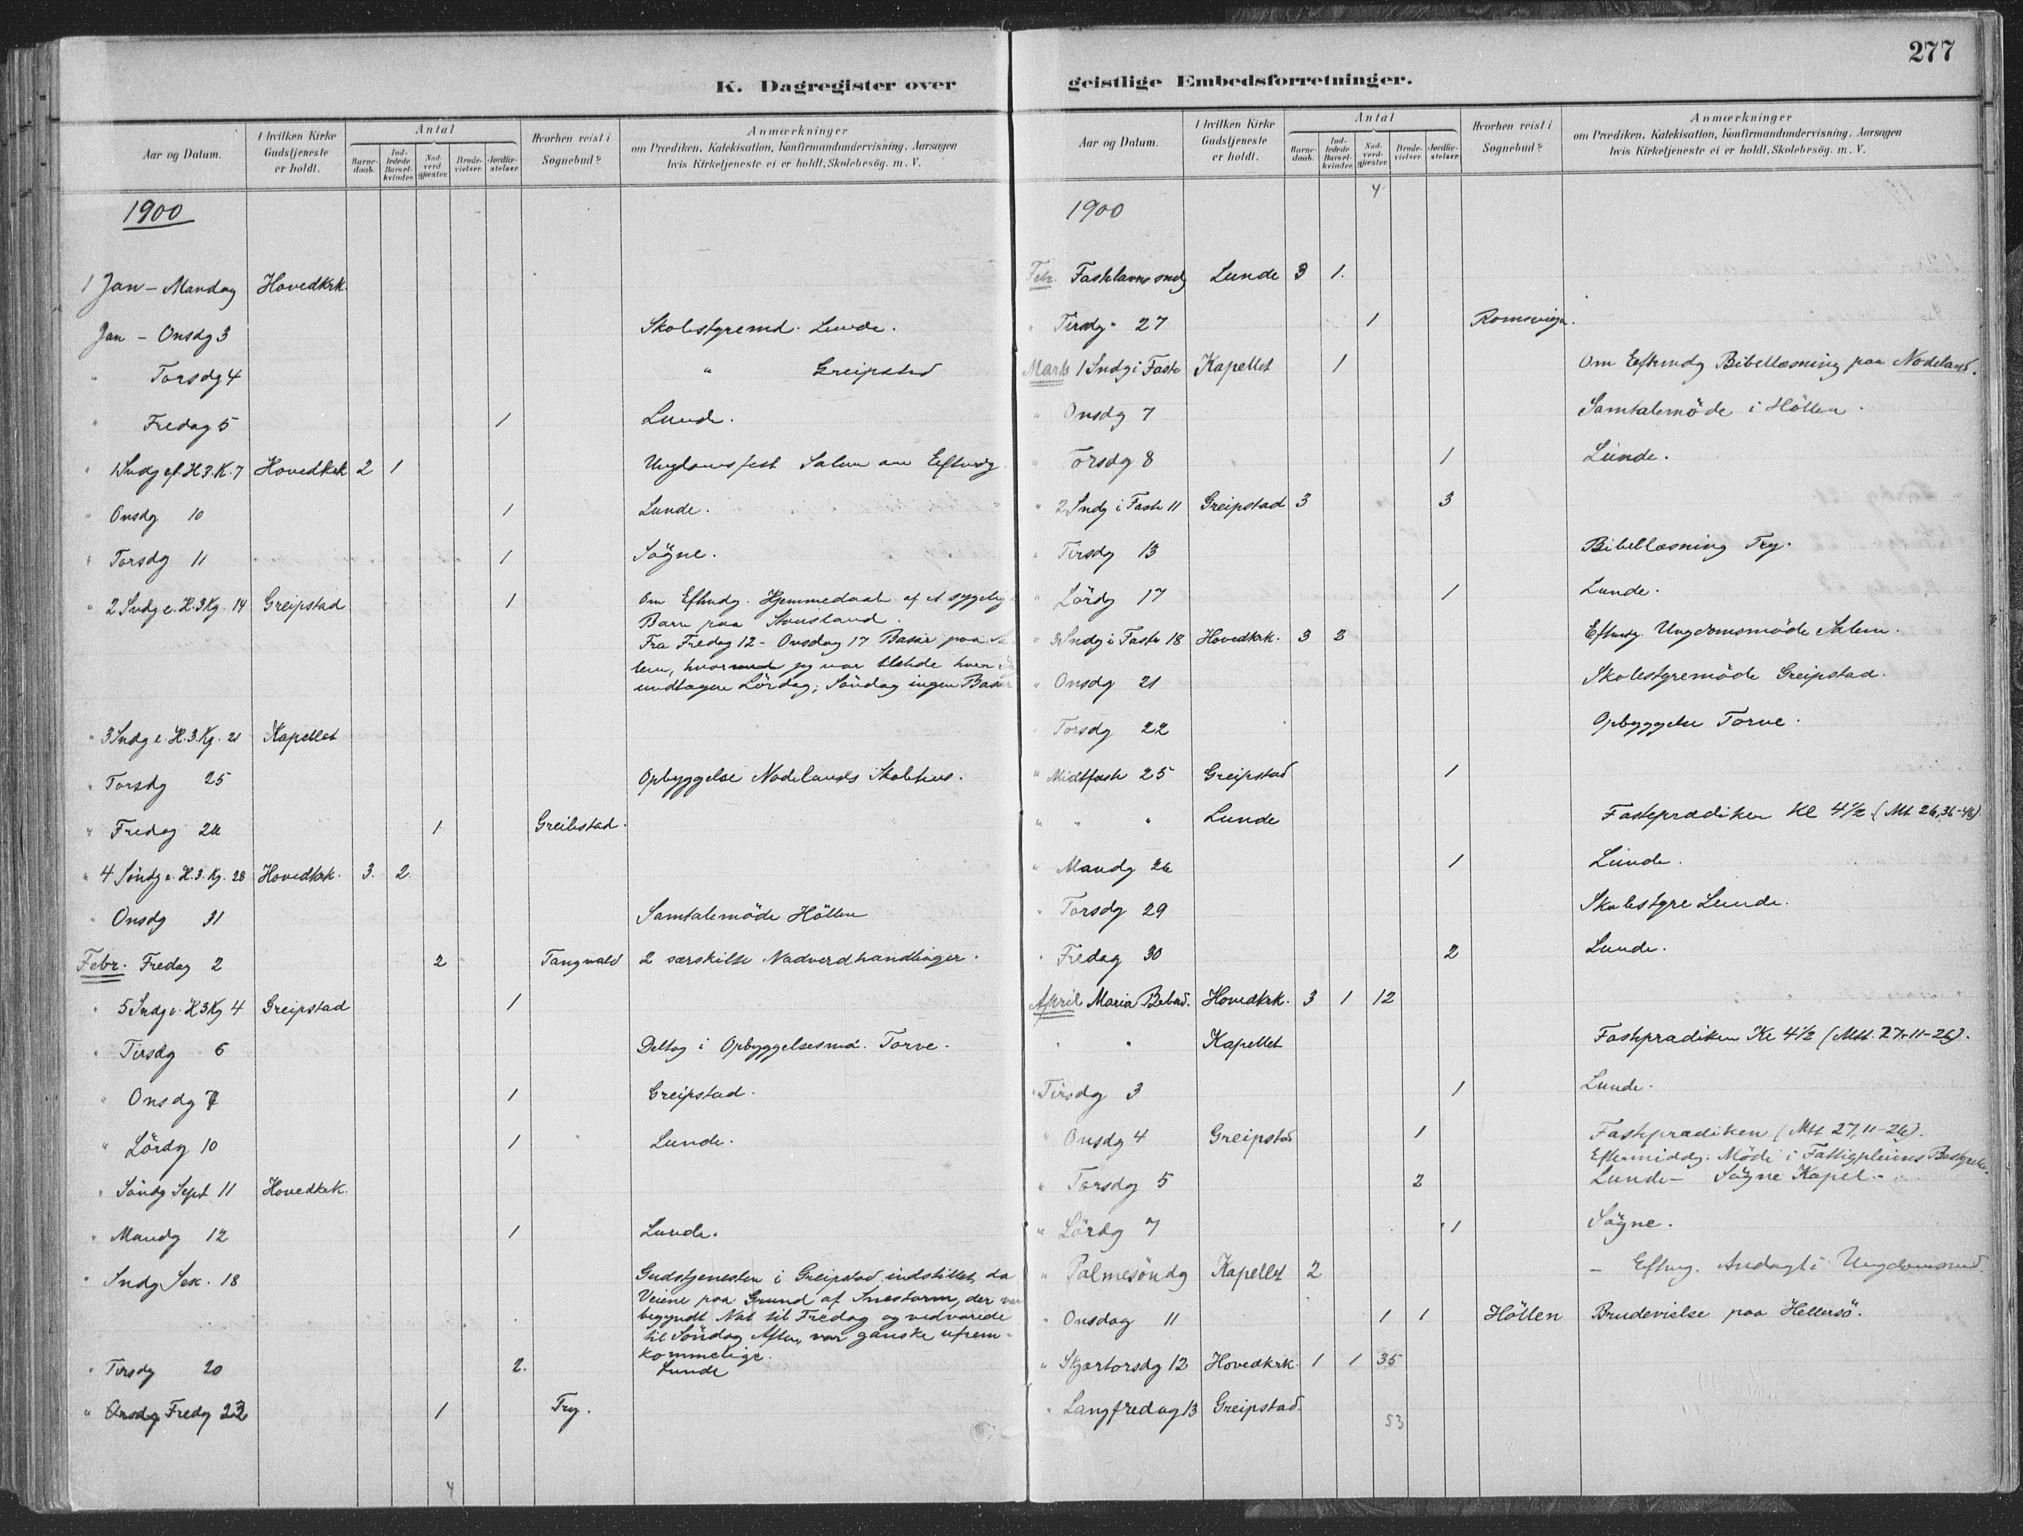 277
K. Dagregister over
Aar og Datum. I hvilken Kirke Gudstjeneste er holdt. Antal Barnedaab. Indledede Barselkvinder. Nadverdgjæster. Brudevielser. Jordfæstelser. Hvorhen reist i Sognebud? Anmærkninger om Prædiken, Katekisation, Konfirmandundervisning, Aarsagen hvis Kirketjeneste ei er holdt, Skolebesøg. m. V.
1900
1 Jan - Mandag Hovedkrk.
Jan - Onsdg 3 Skolestyremd. Lunde.
" Torsdg 4 " Greipstad
" Fredag 5 1 Lund.
" 1 Sndg ef. H.3.K. 7 Hovedkrk 2 1 Ungdomsfest Salem om Eftmdg
" Onsdg 10 1 Lunde.
" Torsdg 11 1 Sögne.
" 2 Sndg e. H.3Kg. 14 Greipstad 1 Om Eftmdg. Hjemmedaab af et sygelig
Barn paa Stousland.
Fra Fredag 12 - Onsdag 17 Basar paa Sa
lem, hvor jeg var tilstede hver
undtagen Lördag; Söndag ingen Basar
" 3 Sndg e. H.3.Kg. 21 Kapellet
" Torsdg 25 Opbyggelse Nodelands Skolehus.
" Fredag 26 1 Greibstad.
" 4 Söndg e. H.3.Kg. 28 Hovedkrk. 3. 2.
" Onsdg 31 Samtalemöde Höllen
Febr. Fredag 2 2 Tangvald 2 særskilte Nadverdhandlinger.
" 5 Sndg e. H3Kg 4 Greipstad 1
" Tirsdg 6 Deltog i Opbyggelsesmd. Torve.
" Onsdg 7 1 Greipstad.
" Lördg 10 1 Lunde.
" Söndg Sept 11 Hovedkrk.
" Mandg 12 1 Lunde.
" Sndg Sex. 18 Gudstjenesten i Greipstad indstillet, da
Veiene paa Grund af Snestorm, der var
begyndt Nat til Fredag og vedvarede
til Söndag Aften, var ganske ufrem-
kommelige.
" Tirsdg 20 2. Lunde
" Onsdg Fredg 23 1 Try.
4
geistlige Embedsforretninger.
Aar og Datum. I hvilken Kirke Gudstjeneste er holdt. Antal Barnedaab. Indledede Barselkvinder. Nadverdgjæster. Brudevielser. Jordfæstelser. Hvorhen reist i Sognebud? Anmærkninger om Prædiken, Katekisation, Konfirmandundervisning, Aarsagen hvis Kirketjeneste ei er holdt, Skolebesøg. m. V.
4
1900
Febr. Fastelavns sndg Lunde 3 1.
" Tirsdg 27 1 Romsvigen.
Marts 1 Sndg i Faste Kapellet 1 Om Eftermdg Bibellæsning paa Nodeland.
" Onsdg 7 Samtalemöde i Höllen.
" Torsdg 8 1 Lunde.
" 2 Sndg i Faste 11 Greipstad 3 3
" Tirsdg 13 Bibellæsning Try.
" Lördg 17 1 Lunde.
" 3 Sndg i Faste 18 Hovedkrk. 3 3 Eftmdg. Ungdomsmöde Salem.
" Onsdg 21 Skolestyremöde Greipstad.
" Torsdg 22 Opbyggelse Torve.
" Midtfaste 25 Greipstad 1
" " " Lunde Fasteprædiken Kl 4 1/2 (Mt 26,36-46)
" Mandg 26 1 Lunde.
" Torsdg 29 Skolestyre Lunde.
" Fredag 30 2 Lunde.
April Maria Bebud. Hovedkrk. 3 1 12
" " Kapellet Fasteprædiken Kl 4 1/2 (Mtt. 27,11-26).
" Tirsdg 3 1 Lunde.
" Onsdg 4 Greipstad 1 Fasteprædiken (Mtt 27,11-26).
Eftermiddg. Möde i Fattigpleiens Bestyrelse
" Torsdg 5 2 Lunde - Sögne Kapel -
" Lördg 7 1 Sögne.
" Palmesöndg Kapellet 2 - Eftmg. Andagt i Ungdomsmd.
" Onsdag 11 1 1 Höllen Brudevielse paa Hellersö.
" Skjærtorsdg 12 Hovedkrk. 1 1 35
" Langfredag 13 Greipstad.
53